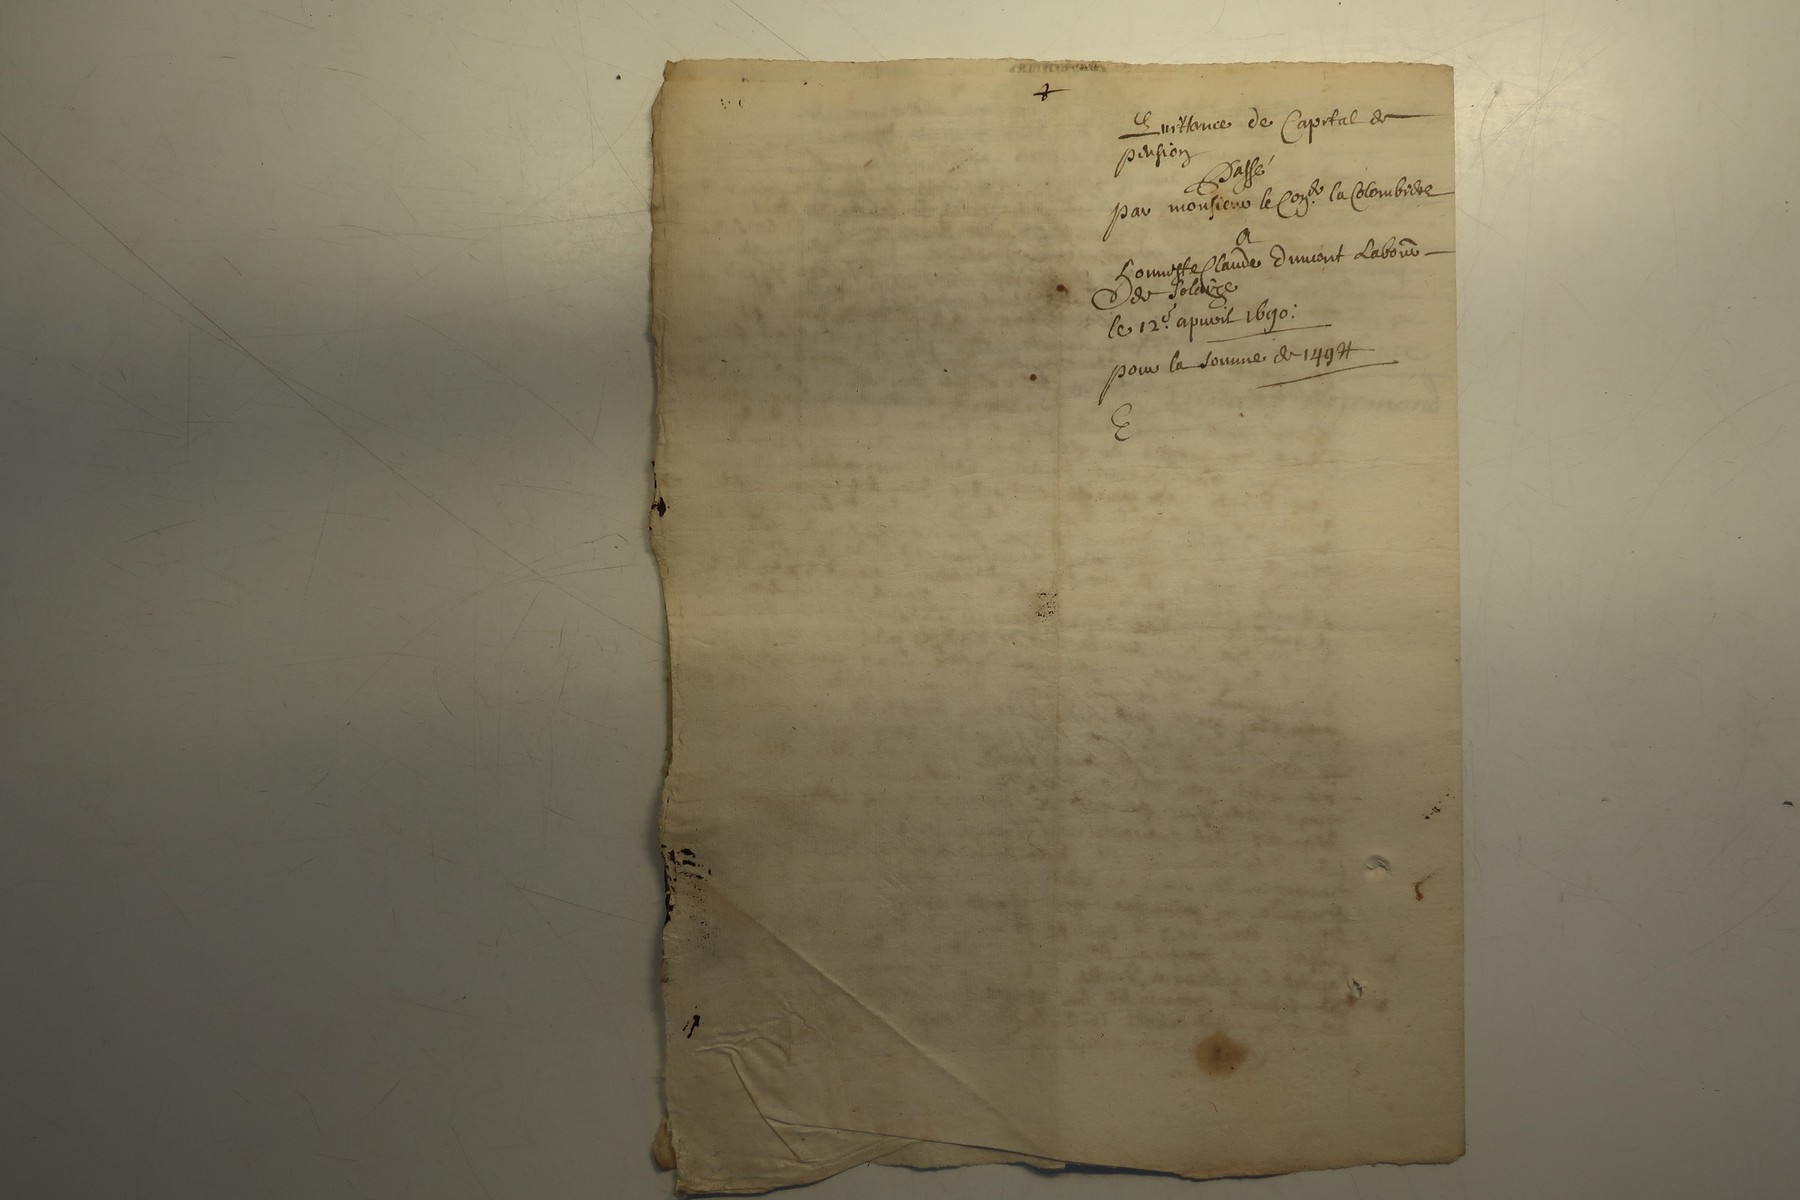 Quittance de Capital de
pension
Passé
par monsieur le Con.de la Colombiere
a
honneste Claude Dumont Labour
de
le 12e apuril 1690:
pour la somme de 149 ₶